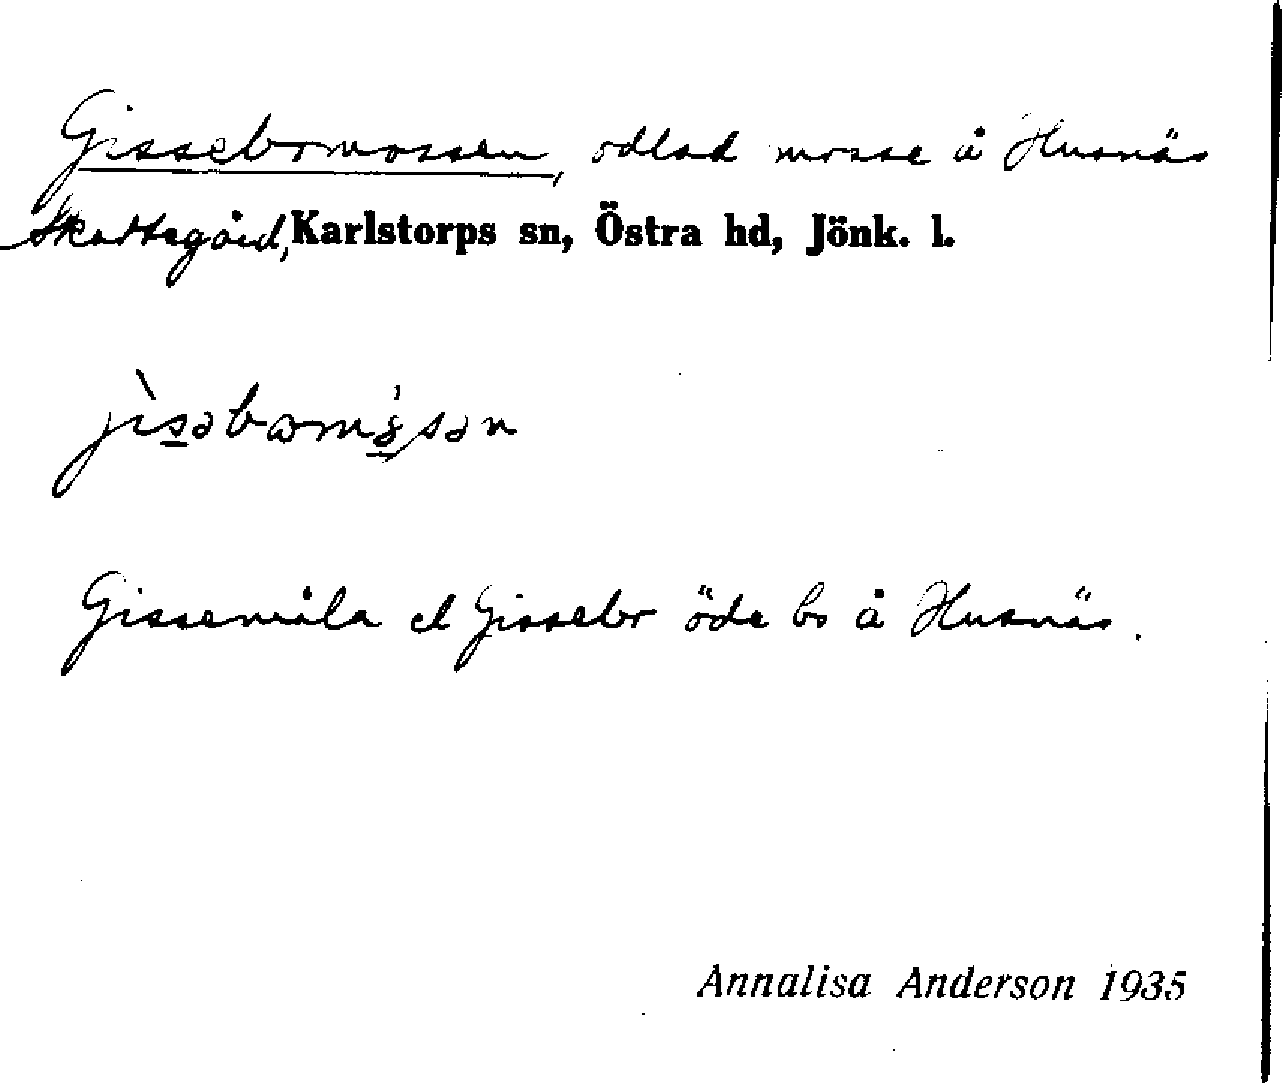 Gissebomossen, odlad mosse å Husnäs
Skattegård, Karlstorps sn, Östra hd, Jönk. l.
Gissemåla el Gissebo öde bs å Husnäs.
Annalisa Anderson 1935